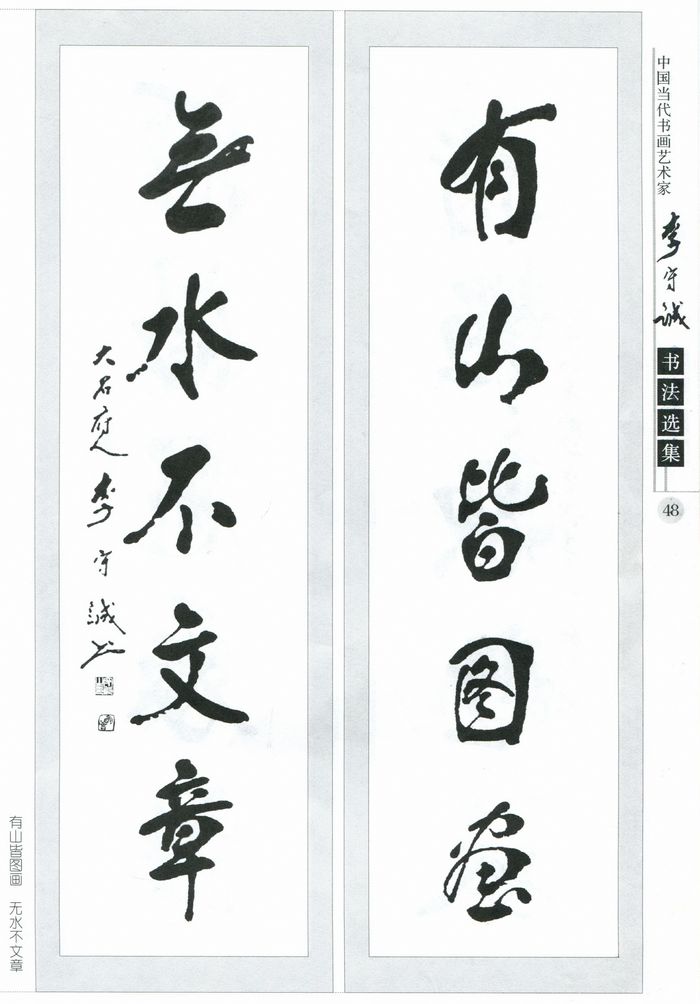 中国当代书画艺术家
李守诚
书法选集
48
有山皆图画
無水不文章
大名府人李守誠书
有山皆图画　无水不文章